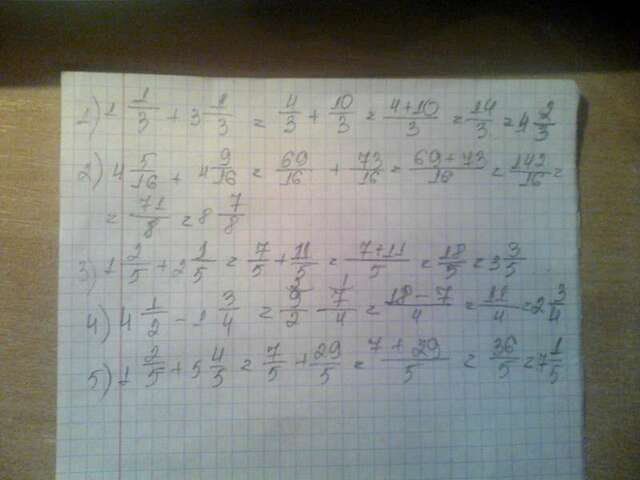 1) 1 1/3 + 3 1/3 = 4/3 + 10/3 = (4+10)/3 = 14/3 = 4 2/3
2) 4 5/16 + 4 9/16 = 69/16 + 73/16 = (69+73)/16 = 142/16 =
= 71/8 = 8 7/8
3) 1 2/5 + 2 1/5 = 7/5 + 11/5 = (7+11)/5 = 18/5 = 3 3/5
4) 4 1/2 - 1 3/4 = 9/2 - 7/4 = (18-7)/4 = 11/4 = 2 3/4
5) 1 2/5 + 5 4/5 = 7/5 + 29/5 = (7+29)/5 = 36/5 = 7 1/5